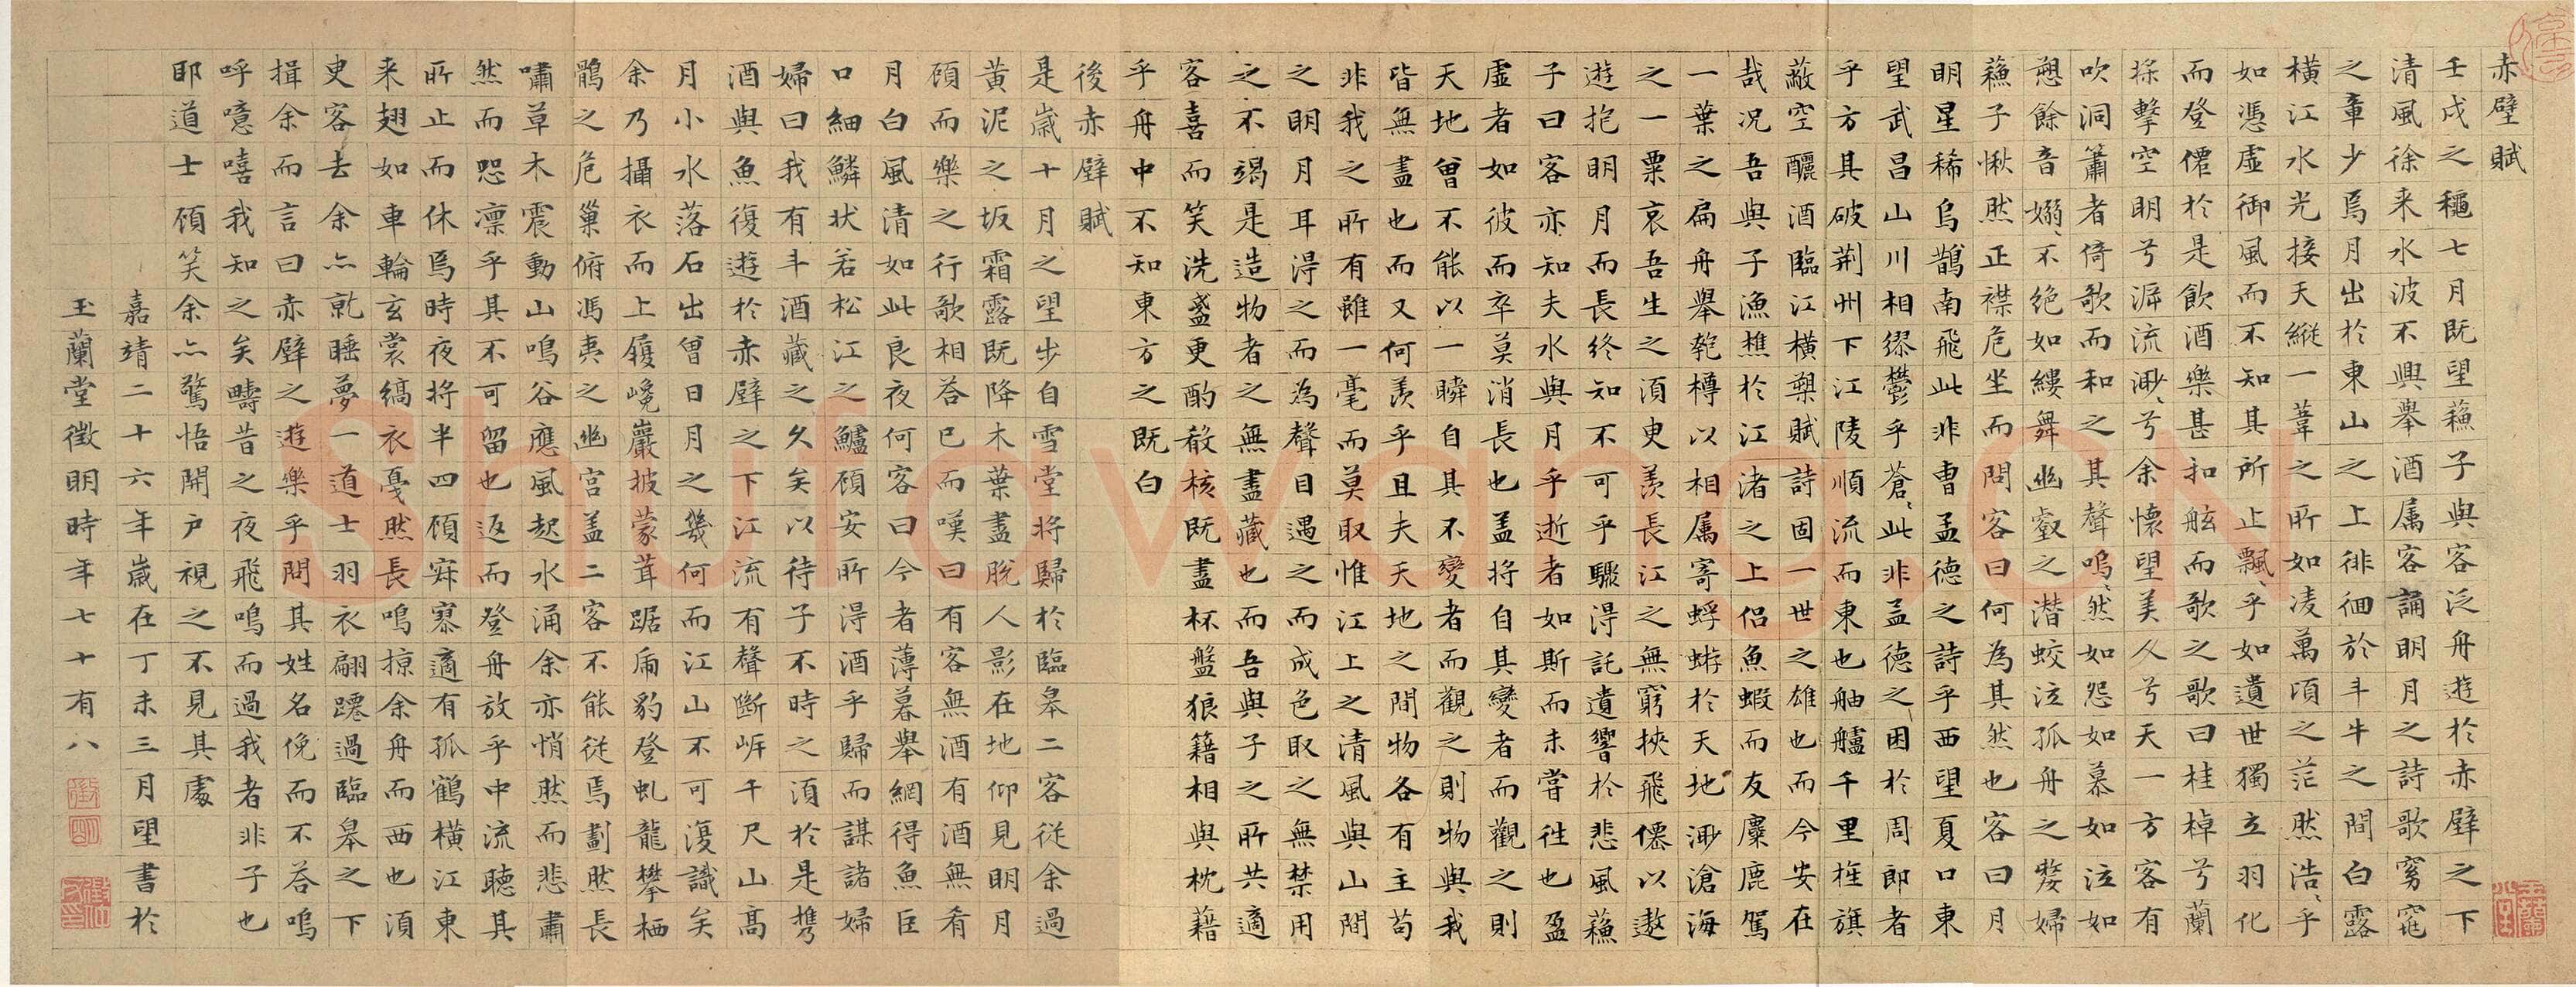 赤壁賦
壬戌之穐七月既望蘓子與客泛舟遊於赤壁之下
清風徐来水波不興舉酒属客誦明月之詩歌窈窕
之章少焉月出於東山之上徘徊於斗牛之間白露
橫江水光接天縱一葦之所如凌萬頃之茫然浩〻乎
如馮虛御風而不知其所止飄〻乎如遺世獨立羽化
而登僊於是飲酒樂甚扣舷而歌之歌曰桂棹兮蘭
槳擊空明兮泝流光渺〻兮余懷望美人兮天一方客有
吹洞簫者倚歌而和之其聲嗚〻然如怨如慕如泣如
愬餘音嫋〻不絶如縷舞幽壑之潜蛟泣孤舟之嫠婦
蘓子愀然正襟危坐而問客曰何為其然也客曰月
明星稀烏鵲南飛此非曹孟德之詩乎西望夏口東
望武昌山川相繆鬱乎蒼〻此非孟德之困於周郎者
乎方其破荆州下江陵順流而東也舳艫千里旌旗
蔽空釃酒臨江橫槊賦詩固一世之雄也而今安在
哉况吾與子漁樵於江渚之上侣魚蝦而友麋鹿駕
一葉之扁舟舉匏樽以相属寄蜉蝣於天地渺滄海
之一粟哀吾生之須臾羨長江之無窮挾飛僊以遨
遊抱明月而長終知不可乎驟得託遺響於悲風蘓
子曰客亦知夫水與月乎逝者如斯而未嘗往也盈
虛者如彼而卒莫消長也盖將自其變者而觀之則
天地曾不能以一瞬自其不變者而觀之則物與我
皆無盡也而又何羨乎且夫天地之間物各有主苟
非我之所有雖一毫而莫取惟江上之清風與山間
之明月耳得之而為聲目遇之而成色取之無禁用
之不竭是造物者之無盡藏也而吾與子之所共適
客喜而笑洗盞更酌殽核既盡杯盤狼籍相與枕藉
乎舟中不知東方之既白
後赤壁賦
是歲十月之望步自雪堂将歸於臨皋二客從余過
黄泥之坂霜露既降木葉盡脱人影在地仰見明月
顧而樂之行歌相荅已而嘆曰有客無酒有酒無肴
月白風清如此良夜何客曰今者薄暮舉網得魚巨
口細鱗狀若松江之鱸顧安所得酒乎歸而謀諸婦
婦曰我有斗酒藏之久矣以待子不時之須於是携
酒與魚復遊於赤壁之下江流有聲斷岸千尺山高
月小水落石出曾日月之幾何而江山不可復識矣
余乃攝衣而上履巉巖披蒙茸踞虎豹登虬龍攀栖
鶻之危巢俯馮夷之幽宫盖二客不能從焉劃然長
嘯草木震動山鳴谷應風起水涌余亦悄然而悲肅
然而恐凛乎其不可留也返而登舟放乎中流聽其
所止而休焉時夜将半四顧寂寥適有孤鶴橫江東
来翅如車輪玄裳縞衣戞然長鳴掠余舟而西也須
臾客去余亦就睡夢一道士羽衣翩躚過臨皋之下
揖余而言曰赤壁之遊樂乎問其姓名俛而不荅嗚
呼噫嘻我知之矣疇昔之夜飛鳴而過我者非子也
耶道士顧笑余亦驚悟開户視之不見其處
嘉靖二十六年歲在丁未三月望書於
玉蘭堂徵明時年七十有八
shufawang.CN